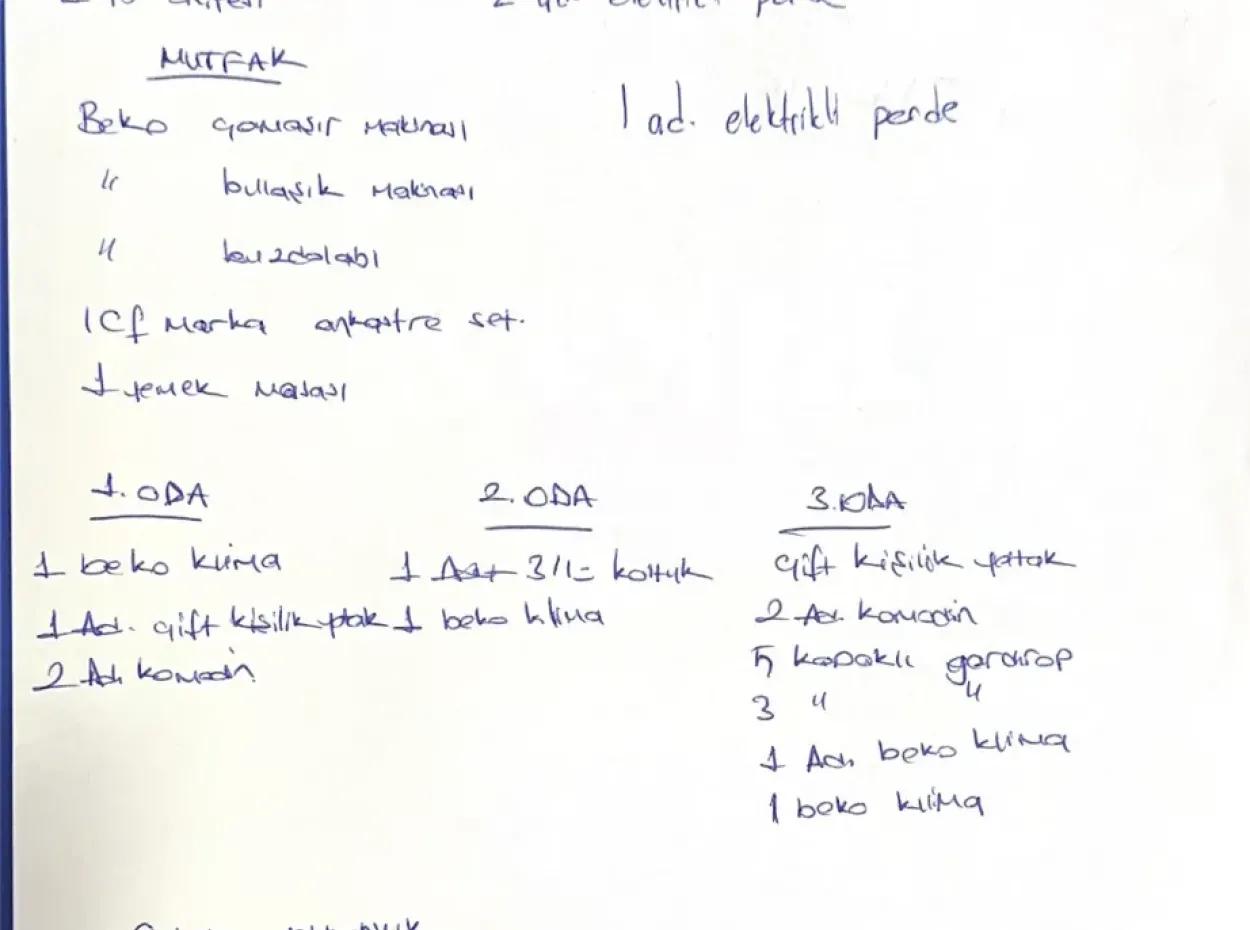 MUTFAK
Beko çamaşır makinası
" bulaşık makinası
" buzdolabı
ICf marka ankastre set.
1 yemek masası
1 ad. elektrikli perde
1. ODA
1 beko klima
1 Ad. çift kişilik ytak
2 Ad. komodin
2. ODA
1 Ad+ 3/1= koltuk
1 beko klima
3. ODA
çift kişilik yattak
2 Ad. komodin
5 kapaklı gardırop
3 " "
1 Ad. beko klima
1 beko klima